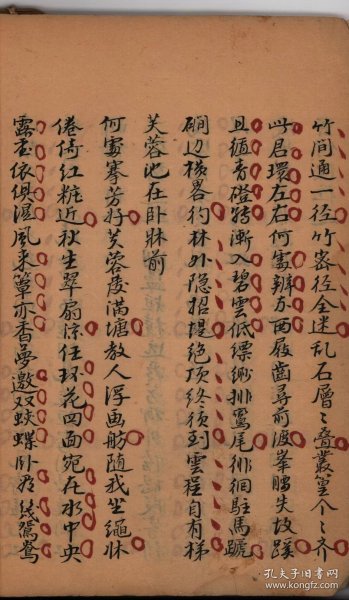 竹间通一径竹密径全迷乱石層〻叠叢篁个〻齐
此居環左右何處辨东西屐齒尋前渡峯腰失故蹊
且循青磴转漸入碧雲低缥缈排鸞尾徘徊駐馬蹏
磵边横畧彴林外隐招提绝顶终须到雲程自有梯
芙蓉池在卧牀前
何處搴芳好芙蓉发满塘教人浮画舫随我坐绳牀
倦倚红粧近秋生翠扇凉任环花四面宛在水中央
露重依俱湿風来簟亦香夢邀双蛱蝶卧 鴛鴦
孔夫子旧书网